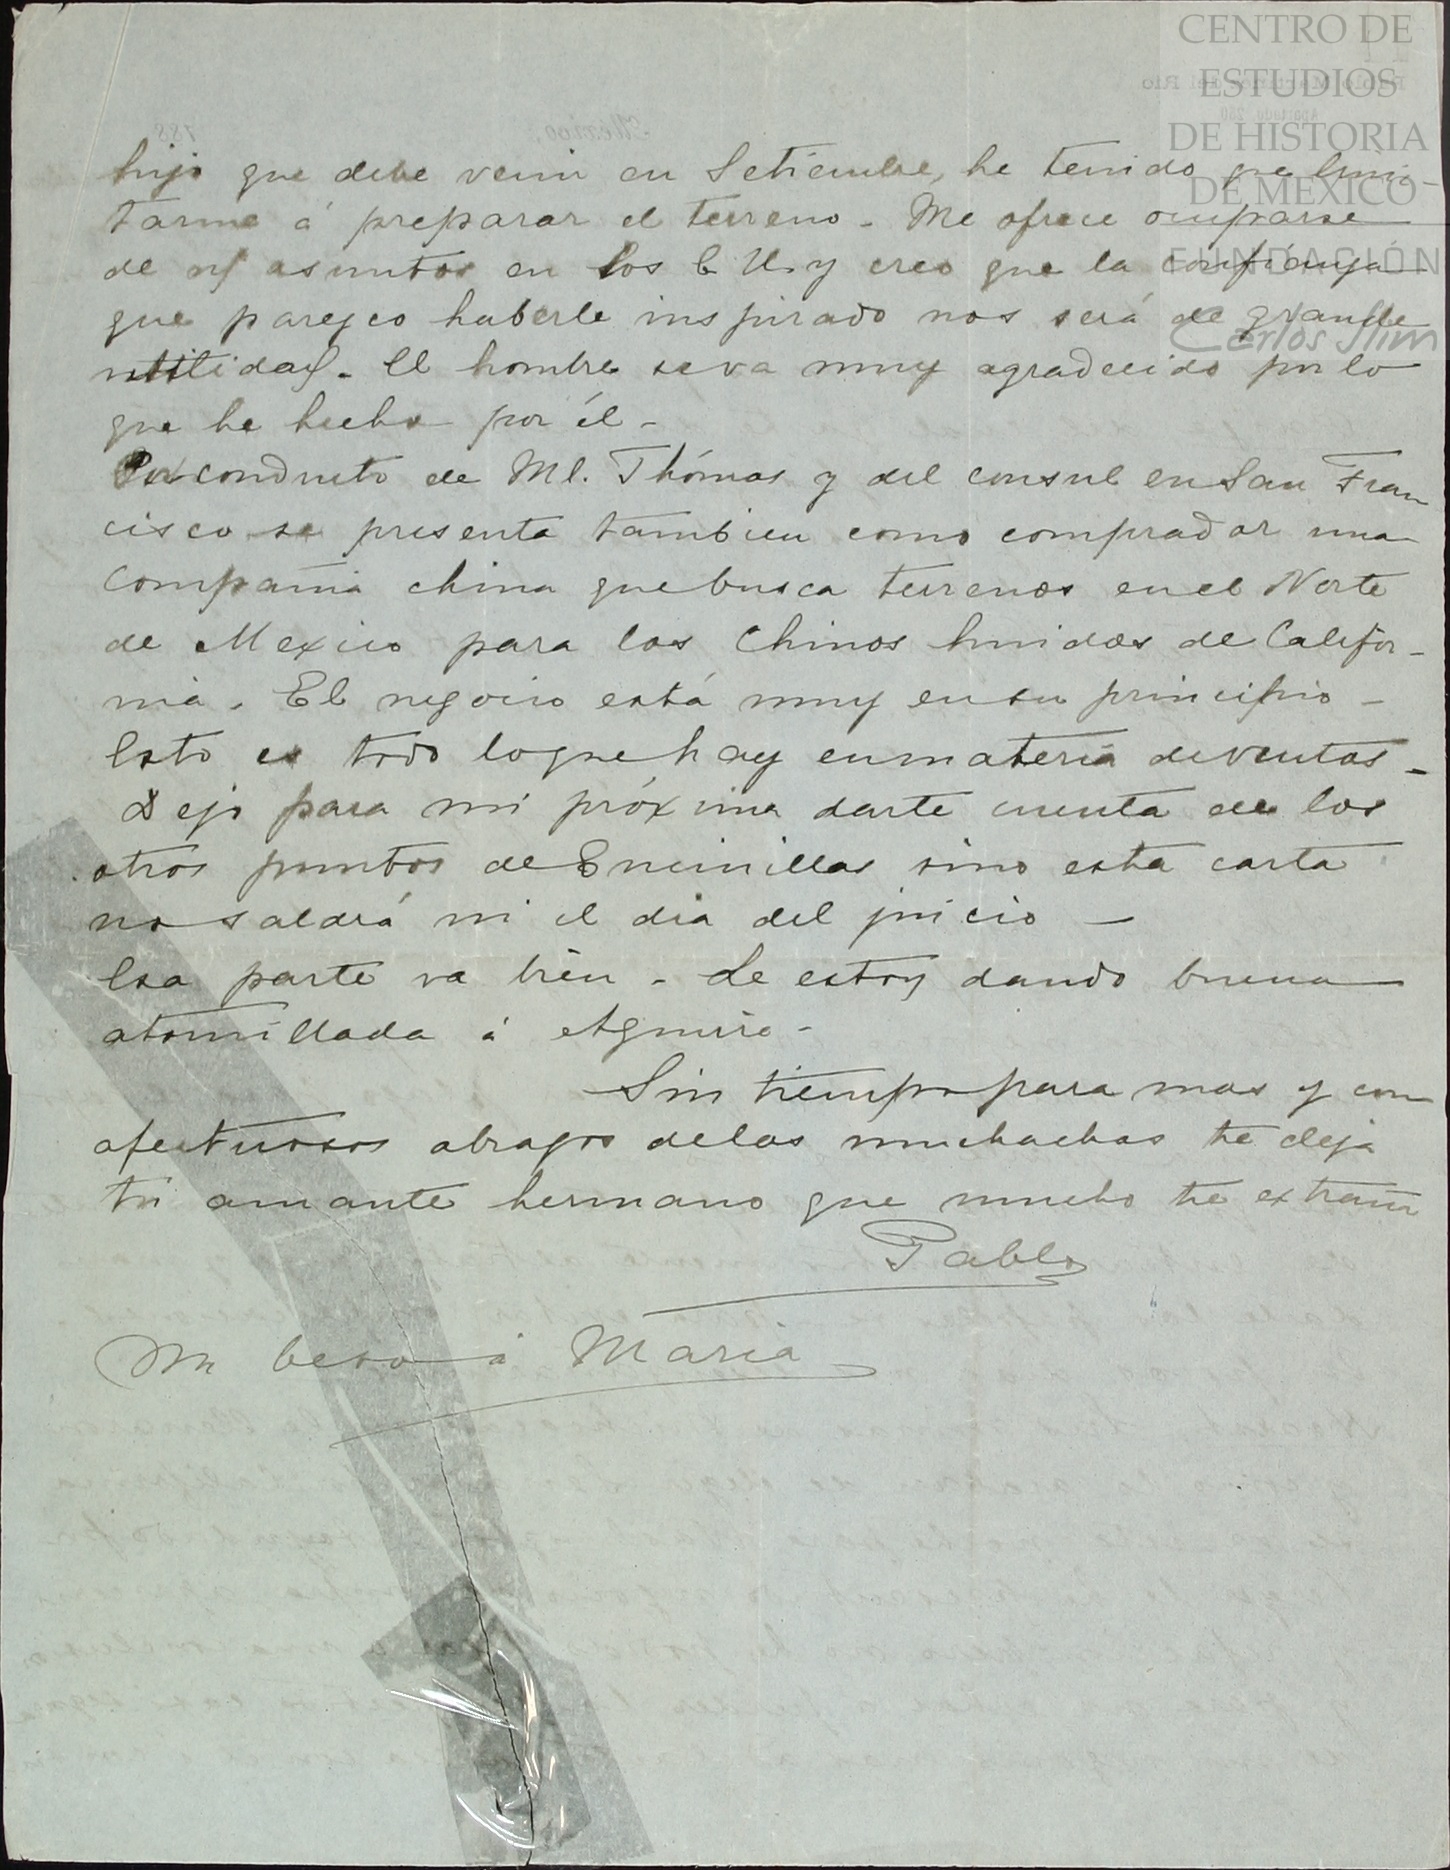 CENTRO DE
ESTUDIOS
DE HISTORIA
DE MEXICO
FUNDACIÓN
Carlos Slim
hijo que debe venir en Setiembre, he tenido que limi-
tarme á preparar el terreno - Me ofrece ocuparse
de ntfs asuntos en los E U. y creo que la confianza
que parezco haberle inspirado nos será de grande
utilidad. El hombre se va muy agradecido por lo
que he hecho por él -
Por conducto de Ml. Thómas y del consul en San Fran
cisco se presenta tambien como comprador una
Compañia china que busca terrenos en el Norte
de Mexico para los Chinos huidos de Califor-
nia. El negocio está muy en su principio -
Esto es todo lo que hay en materia de ventas -
Dejo para mi próxima darte cuenta de los
otros puntos de Encinillas sino esta carta
no saldrá ni el dia del juicio -
Esa parte va bien - Le estoy dando buena
atornillada á Aguirre -
Sin tiempo para mas y con
afectuosos abrazos de las muchachas te deja
tu amante hermano que mucho te extraña
Pablo
Un beso á Maria